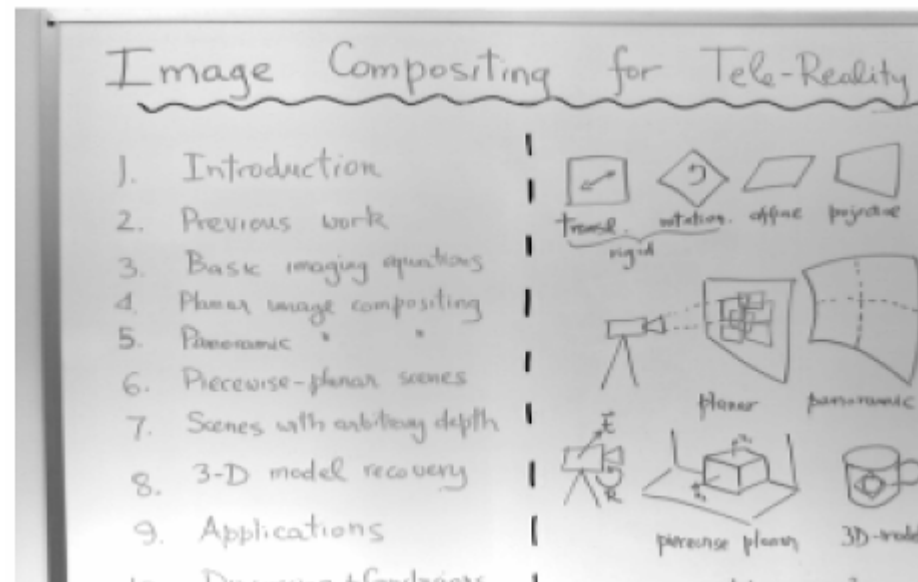 Image Compositing for Tele-Reality
1. Introduction
2. Previous work
3. Basic imaging equations
4. Planar image compositing
5. Panoramic " "
6. Piecewise-planar scenes
7. Scenes with arbitrary depth
8. 3-D model recovery
9. Applications
transl. rotation. affine projective
rigid
planar panoramic
t
R
piecewise planar 3D-mode